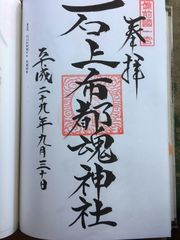 奉拝
備前國一宮
石上布都魂神社
平成二十九年九月三十日